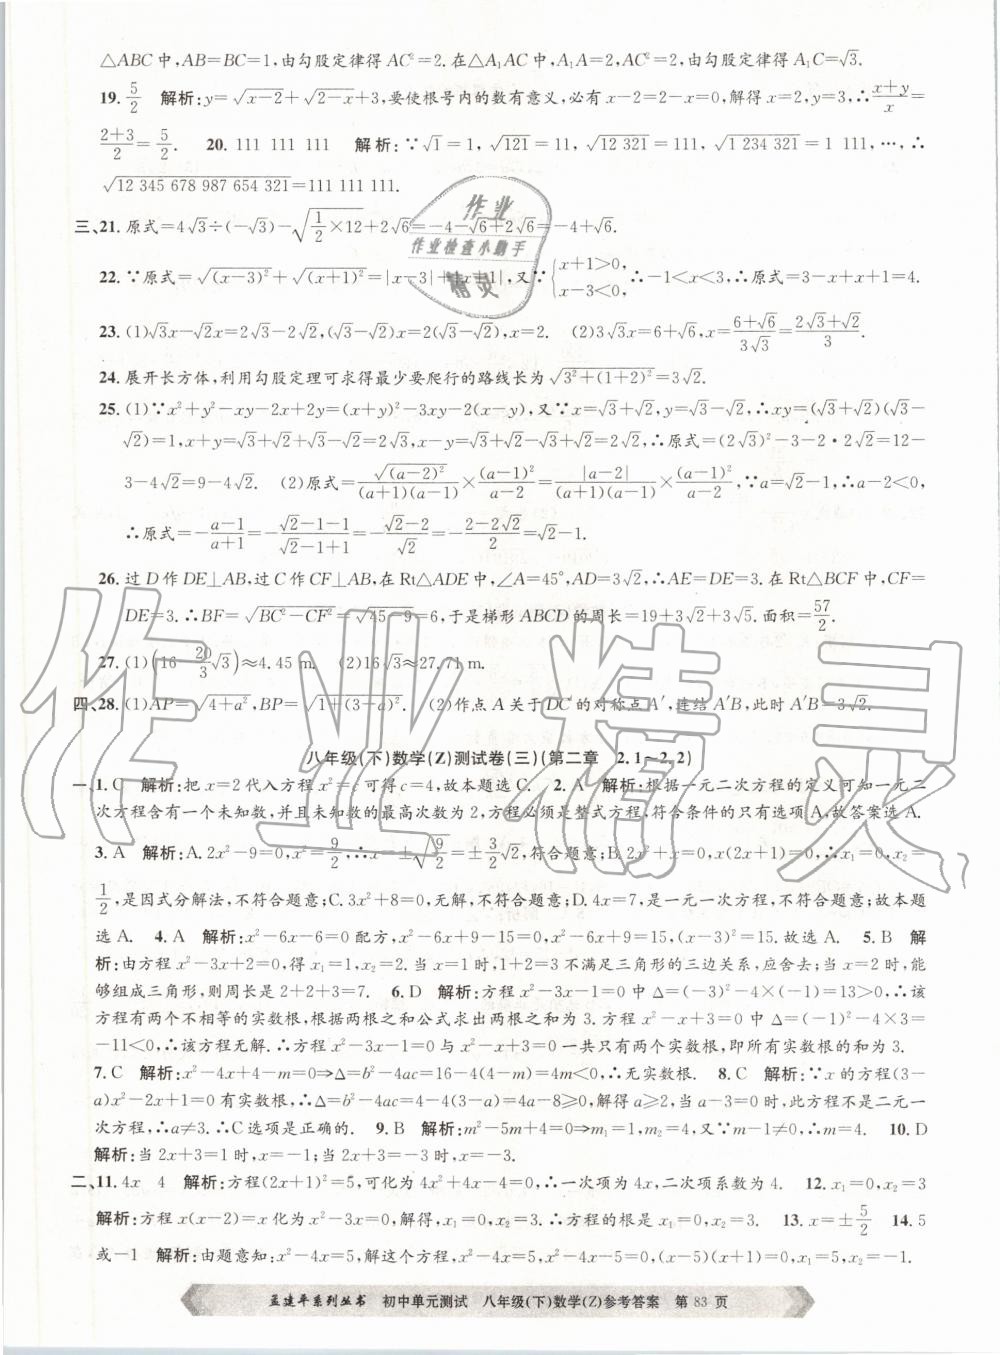 △ABC中,AB=BC=1,由勾股定律得AC²=2.在△A₁AC中,A₁A=2,AC²=2,由勾股定律得A₁C=√3.
19. 5/2 解析:y=√(x-2)+√(2-x)+3,要使根号内的数有意义,必有x-2=2-x=0,解得x=2,y=3,∴(x+y)/x=
(2+3)/2=5/2. 20. 111 111 111 解析:∵√1=1,√121=11,√12 321=111,√1 234 321=1 111,…,∴
√12 345 678 987 654 321=111 111 111.
三、21. 原式=4√3÷(-√3)-√(1/2×12)+2√6=-4-√6+2√6=-4+√6.
22. ∵原式=√(x-3)²+√(x+1)²=|x-3|+|x+1|,又∵{x+1>0, x-3<0, ∴-1<x<3,∴原式=3-x+x+1=4.
23. (1)√3x-√2x=2√3-2√2,(√3-√2)x=2(√3-√2),x=2. (2)3√3x=6+√6,x=(6+√6)/(3√3)=(2√3+√2)/3.
24. 展开长方体,利用勾股定理可求得最少要爬行的路线长为√(3²+(1+2)²)=3√2.
25. (1)∵x²+y²-xy-2x+2y=(x+y)²-3xy-2(x-y),又∵x=√3+√2,y=√3-√2,∴xy=(√3+√2)(√3-
√2)=1,x+y=√3+√2+√3-√2=2√3,x-y=√3+√2-√3+√2=2√2,∴原式=(2√3)²-3-2·2√2=12-
3-4√2=9-4√2. (2)原式=√(a-2)²/((a+1)(a-1))×(a-1)²/(a-2)=|a-2|/((a+1)(a-1))×(a-1)²/(a-2),∵a=√2-1,a-2<0,
∴原式=-(a-1)/(a+1)=-(√2-1-1)/(√2-1+1)=-(√2-2)/√2=-(2-2√2)/2=√2-1.
26. 过D作DE⊥AB,过C作CF⊥AB,在Rt△ADE中,∠A=45°,AD=3√2,∴AE=DE=3.在Rt△BCF中,CF=
DE=3.∴BF=√(BC²-CF²)=√(45-9)=6,于是梯形ABCD的周长=19+3√2+3√5.面积=57/2.
27. (1)(16-20/3√3)≈4.45 m. (2)16√3≈27.71 m.
四、28. (1)AP=√(4+a²),BP=√(1+(3-a)²). (2)作点A关于DC的对称点A′,连结A′B,此时A′B=3√2.
八年级(下)数学(Z)测试卷(三)(第二章 2.1~2.2)
一、1. C 解析:把x=2代入方程x²=c可得c=4,故本题选C. 2. A 解析:根据一元二次方程的定义可知一元二
次方程含有一个未知数,并且未知数的最高次数为2,方程必须是整式方程,符合条件的只有选项A,故答案选A.
3. A 解析:A. 2x²-9=0,x²=9/2,∴x=±√(9/2)=±3/2√2,符合题意;B. 2x²+x=0,x(2x+1)=0,∴x₁=0,x₂=
1/2,是因式分解法,不符合题意;C. 3x²+8=0,无解,不符合题意;D. 4x=7,是一元一次方程,不符合题意.故本题
选A. 4. A 解析:x²-6x-6=0配方,x²-6x+9-15=0,x²-6x+9=15,(x-3)²=15.故选A. 5. B 解
析:由方程x²-3x+2=0,得x₁=1,x₂=2.当x=1时,1+2=3不满足三角形的三边关系,应舍去;当x=2时,能
够组成三角形,则周长是2+2+3=7. 6. D 解析:方程x²-3x-1=0中Δ=(-3)²-4×(-1)=13>0,∴该
方程有两个不相等的实数根,根据两根之和公式求出两根之和为3.方程x²-x+3=0中Δ=(-1)²-4×3=
-11<0,∴该方程无解.∴方程x²-3x-1=0与x²-x+3=0一共只有两个实数根,即所有实数根的和为3.
7. C 解析:x²-4x+4-m=0⇒Δ=b²-4ac=16-4(4-m)=4m<0,∴无实数根. 8. C 解析:∵x的方程(3-
a)x²-2x+1=0有实数根,∴Δ=b²-4ac=4-4(3-a)=4a-8≥0,解得a≥2,当a-3=0时,此方程不是二元一
次方程,∴a≠3.∴C选项是正确的. 9. B 解析:m²-5m+4=0⇒m₁=1,m₂=4,又∵m-1≠0,∴m=4. 10. D
解析:当2x+3=1时,x=-1;当2x+3=-3时,x=-3.
二、11. 4x 4 解析:方程(2x+1)²=5,可化为4x²+4x-4=0,∴一次项为4x,二次项系数为4. 12. x₁=0,x₂=3
解析:方程x(x-2)=x化为x²-3x=0,解得,x₁=0,x₂=3;∴方程的根是x₁=0,x₂=3. 13. x=±5/2 14. 5
或-1 解析:由题意知:x²-4x=5,解这个方程,x²-4x=5,x²-4x-5=0,(x-5)(x+1)=0,x=5,x=-1.
孟建平系列丛书 初中单元测试 八年级(下)数学(Z)参考答案 第83页
作业
作业检查小助手
精灵
作业精灵